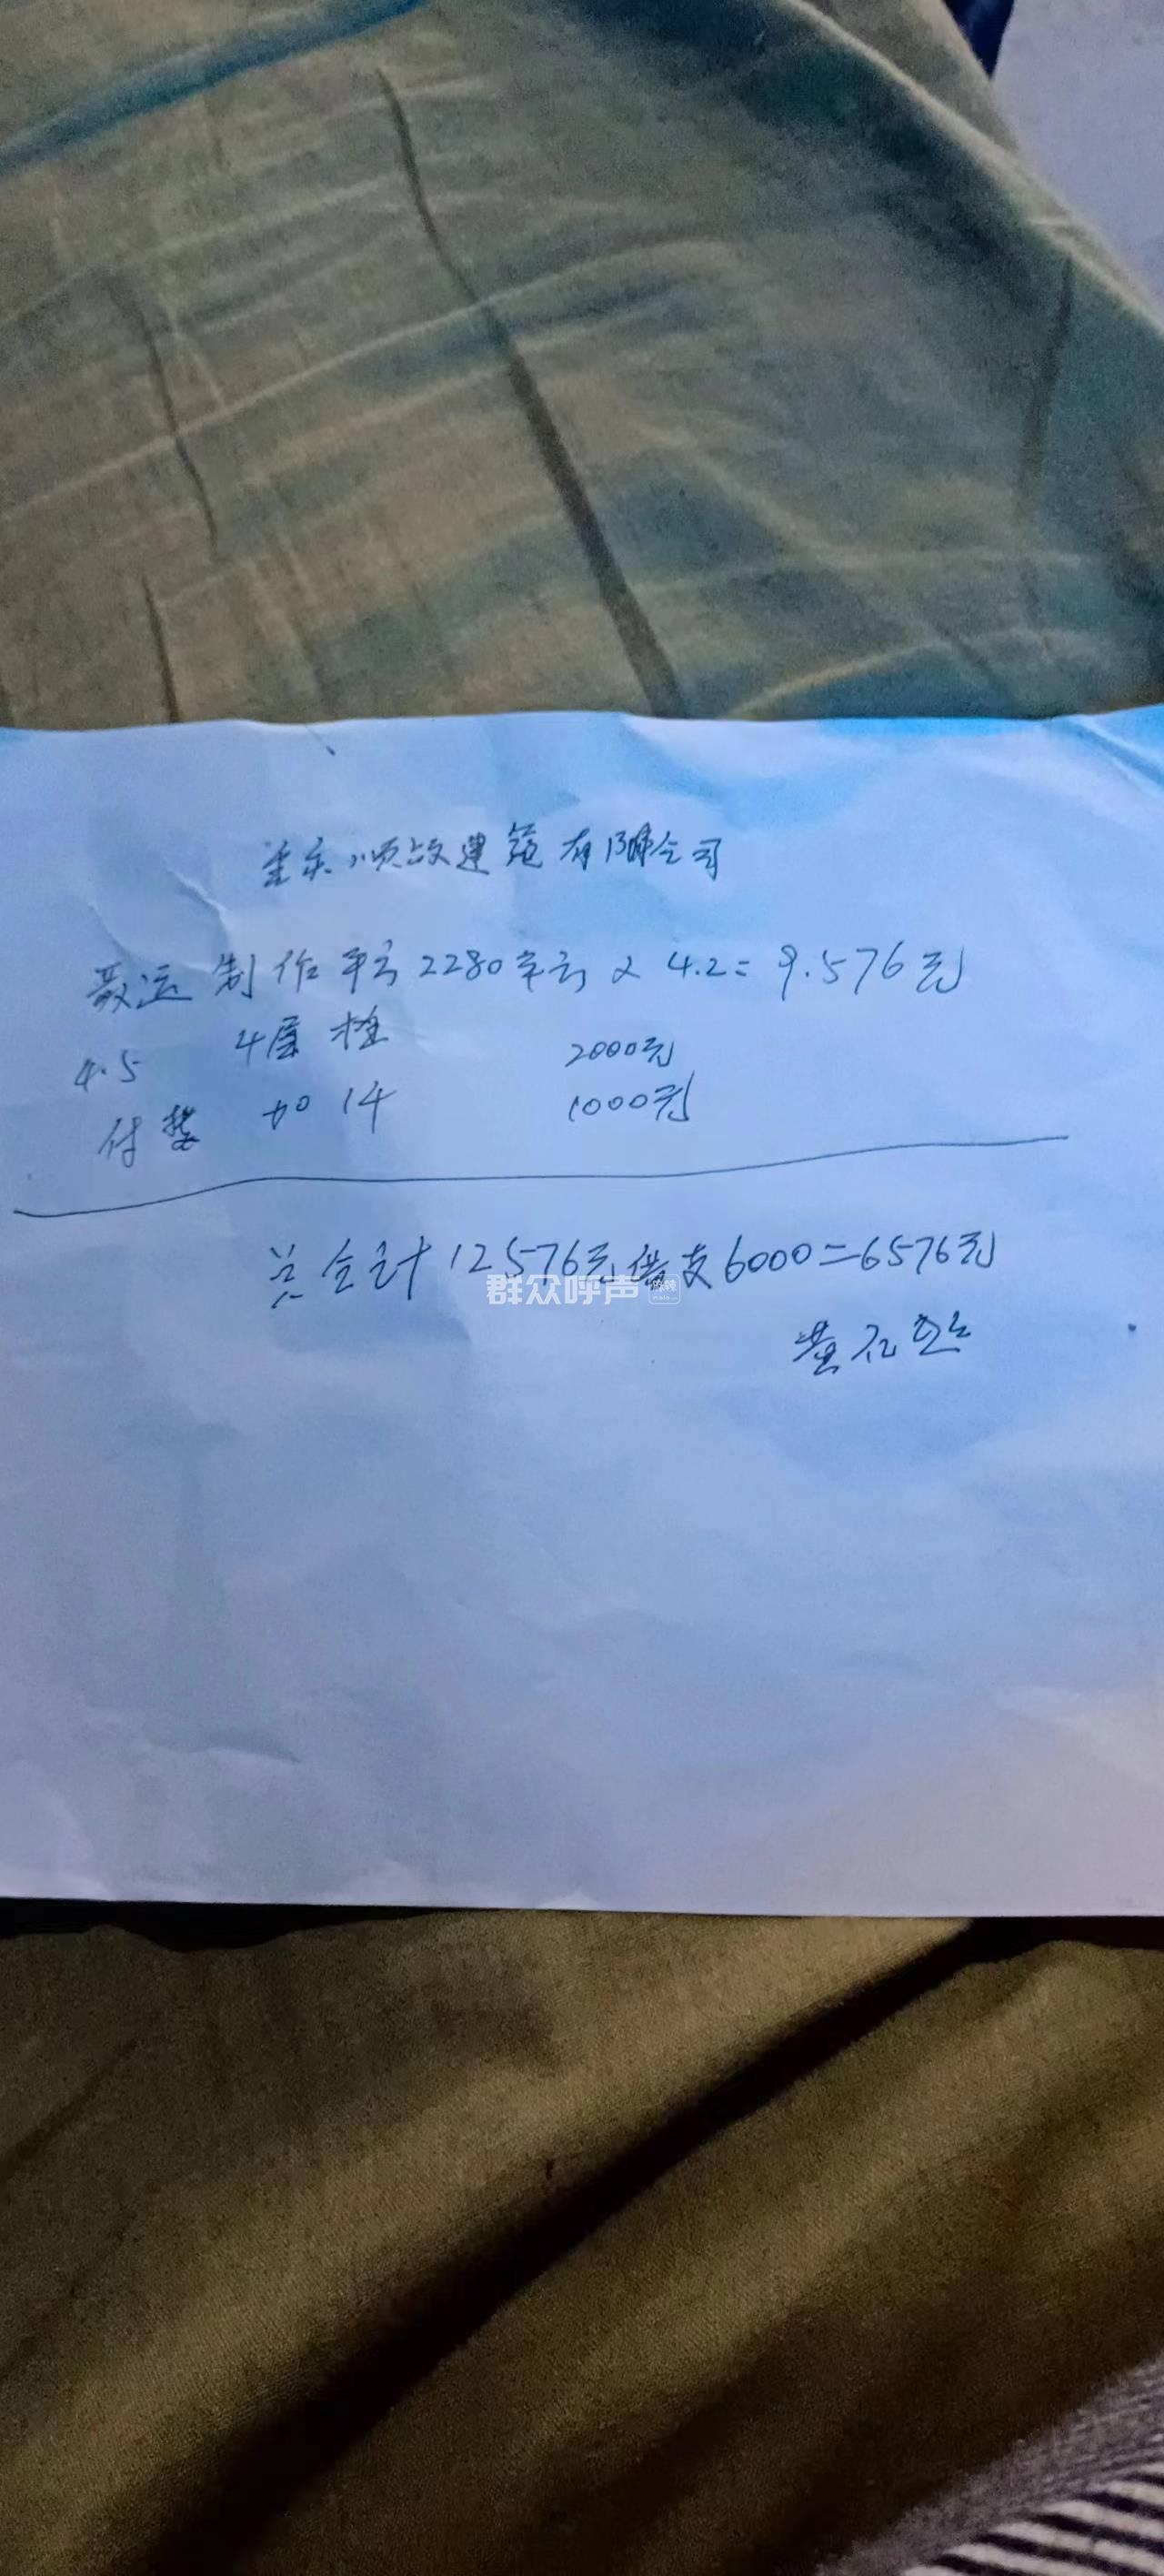 重庆顺政建筑有限公司
搬运制作平方2280平方×4.2=9.576元
4.5 4层栓 2000元
付垫 加14 1000元
总合计12576元借支6000=6576元
群众呼声
黄